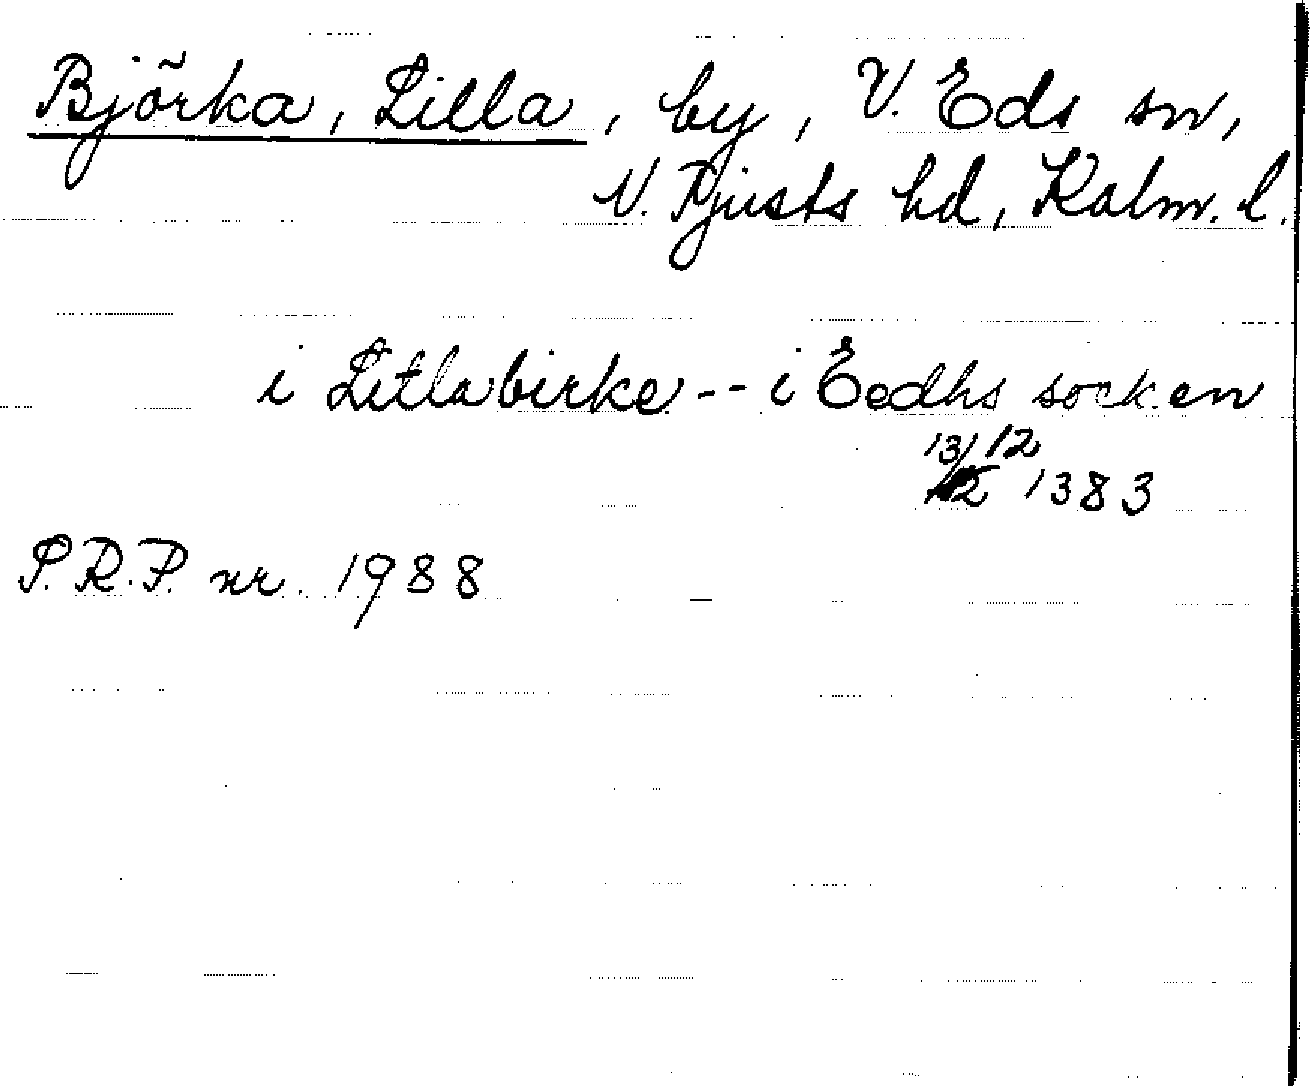 Björka, Lilla, by, V. Eds sn,
N. Tjusts hd, Kalm. l.
i Litlabirke -- i Eedhs socken
13/12 1383
S.R.P. nr. 1988